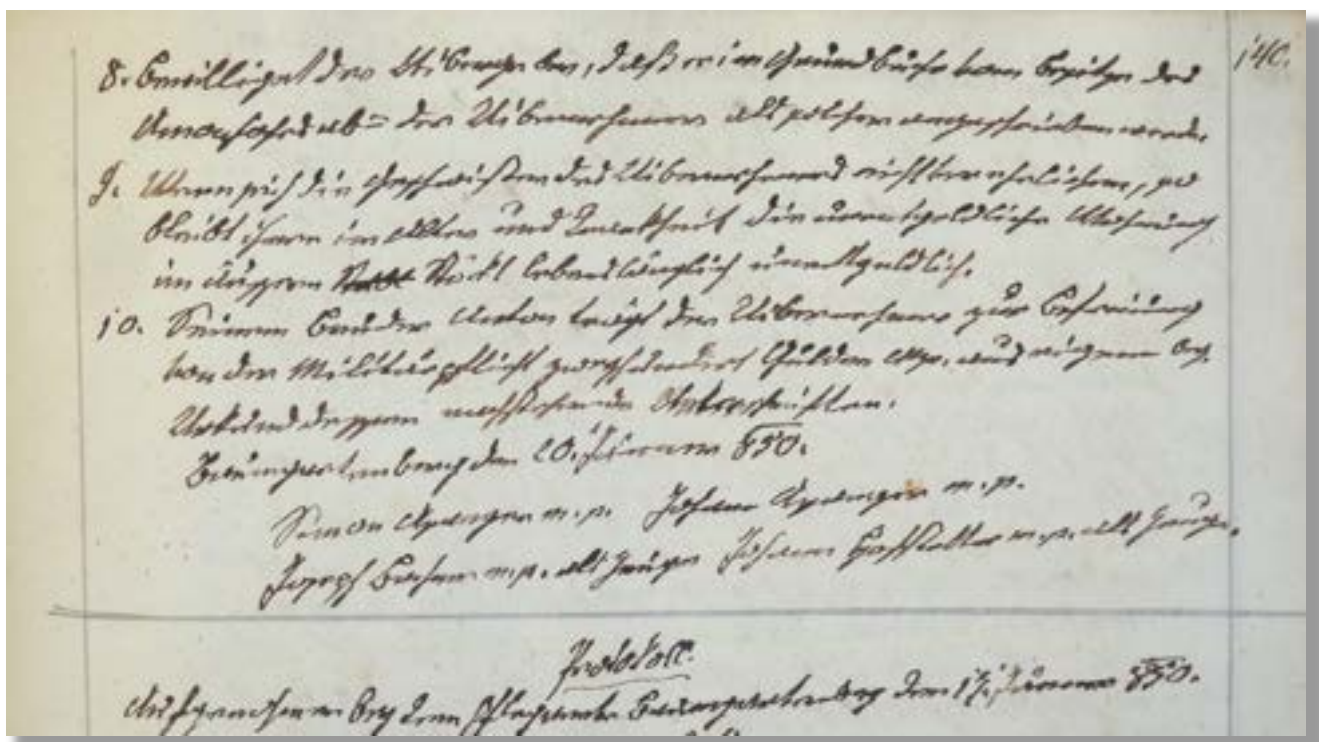 140.
8. Bewilliget der Uibergeber, daß er im Grundbuche vom Besitze des
ab= der Uibernehmer als solcher angeschrieben werde.
9. Wenn sich die Geschwister des Uibernehmers nicht verehelichen, so
bleibt ihnen im Alter und Krankheit die unentgeldliche Wohnung
im Stökl lebenslänglich unentgeldlich.
10. Seinem Bruder Anton trägt der Uibernehmer zur Befreiung
von der Militärpflicht Gulden aus eigenem bey.
Urkund dessen nachstehende Unterschriften.
Baumgartenberg den 20. Jänner 850.
Simon m. p. Johann m. p.
Joseph m. p. als Zeuge Johann m. p. als Zeuge.
Protokoll
Aufgenommen bey dem Pflegamte Baumgartenberg den Jänner 850.